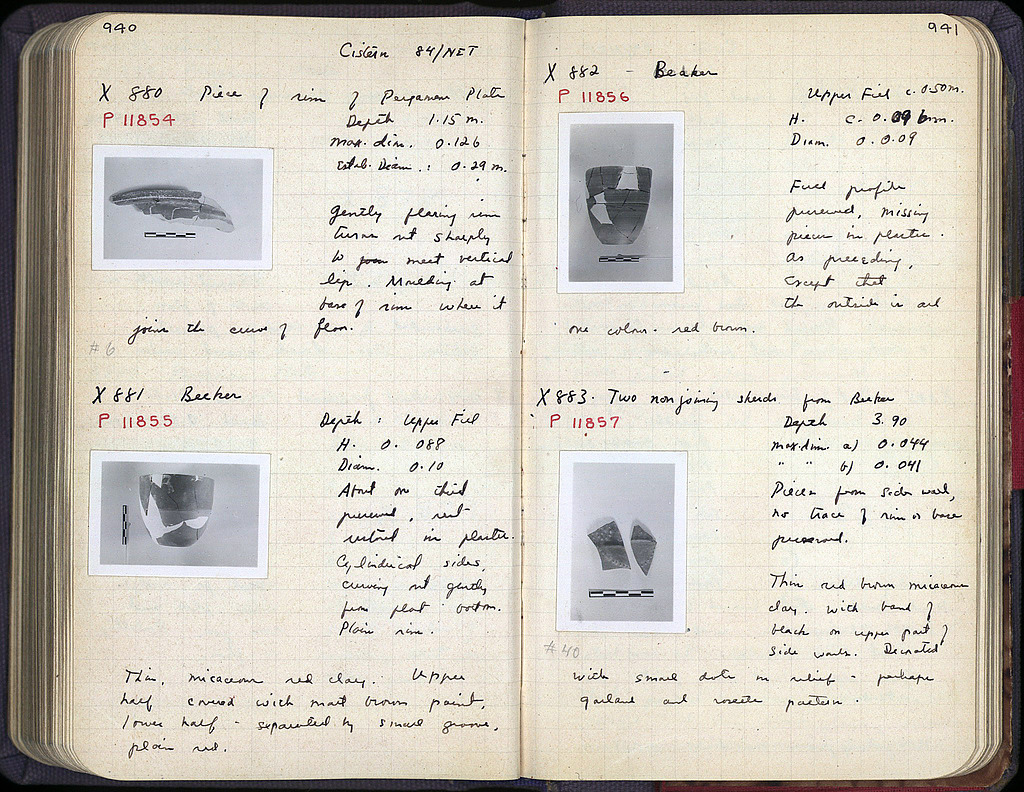 940
Cistern 84/NET
X 880 Piece of rim of Pergamene Plate
P 11854
Depth 1.15 m.
max. dim. 0.126
Estab. Diam.: 0.29 m.
Gently flaring rim
turns out sharply
to meet vertical
lip. Moulding at
base of rim where it
joins the curve of floor.
#6
X 881 Beaker
P 11855
Depth: Upper Fill
H. 0.088
Diam. 0.10
About one third
preserved, rest
restored in plaster.
Cylindrical sides,
curving out gently
from flat bottom.
Plain rim.
Thin, micaceous red clay. Upper
half covered with matt brown paint,
lower half - separated by small groove,
plain red.
941
X 882 - Beaker
P 11856
Upper Fill c. 0.50m.
H. c. 0.09
Diam. 0.09
Full profile
preserved, missing
pieces in plaster.
As preceding,
Except that
the outside is all
one colour - red brown.
X 883. Two nonjoining sherds from Beaker
P 11857
Depth 3.90
max. dim. a) 0.044
" " b) 0.041
Pieces from side wall,
no trace of rim or base
preserved.
Thin red brown micaceous
clay. with band of
black on upper part of
side walls. Decorated
#40
with small dots in relief - perhaps
garland and rosette pattern.